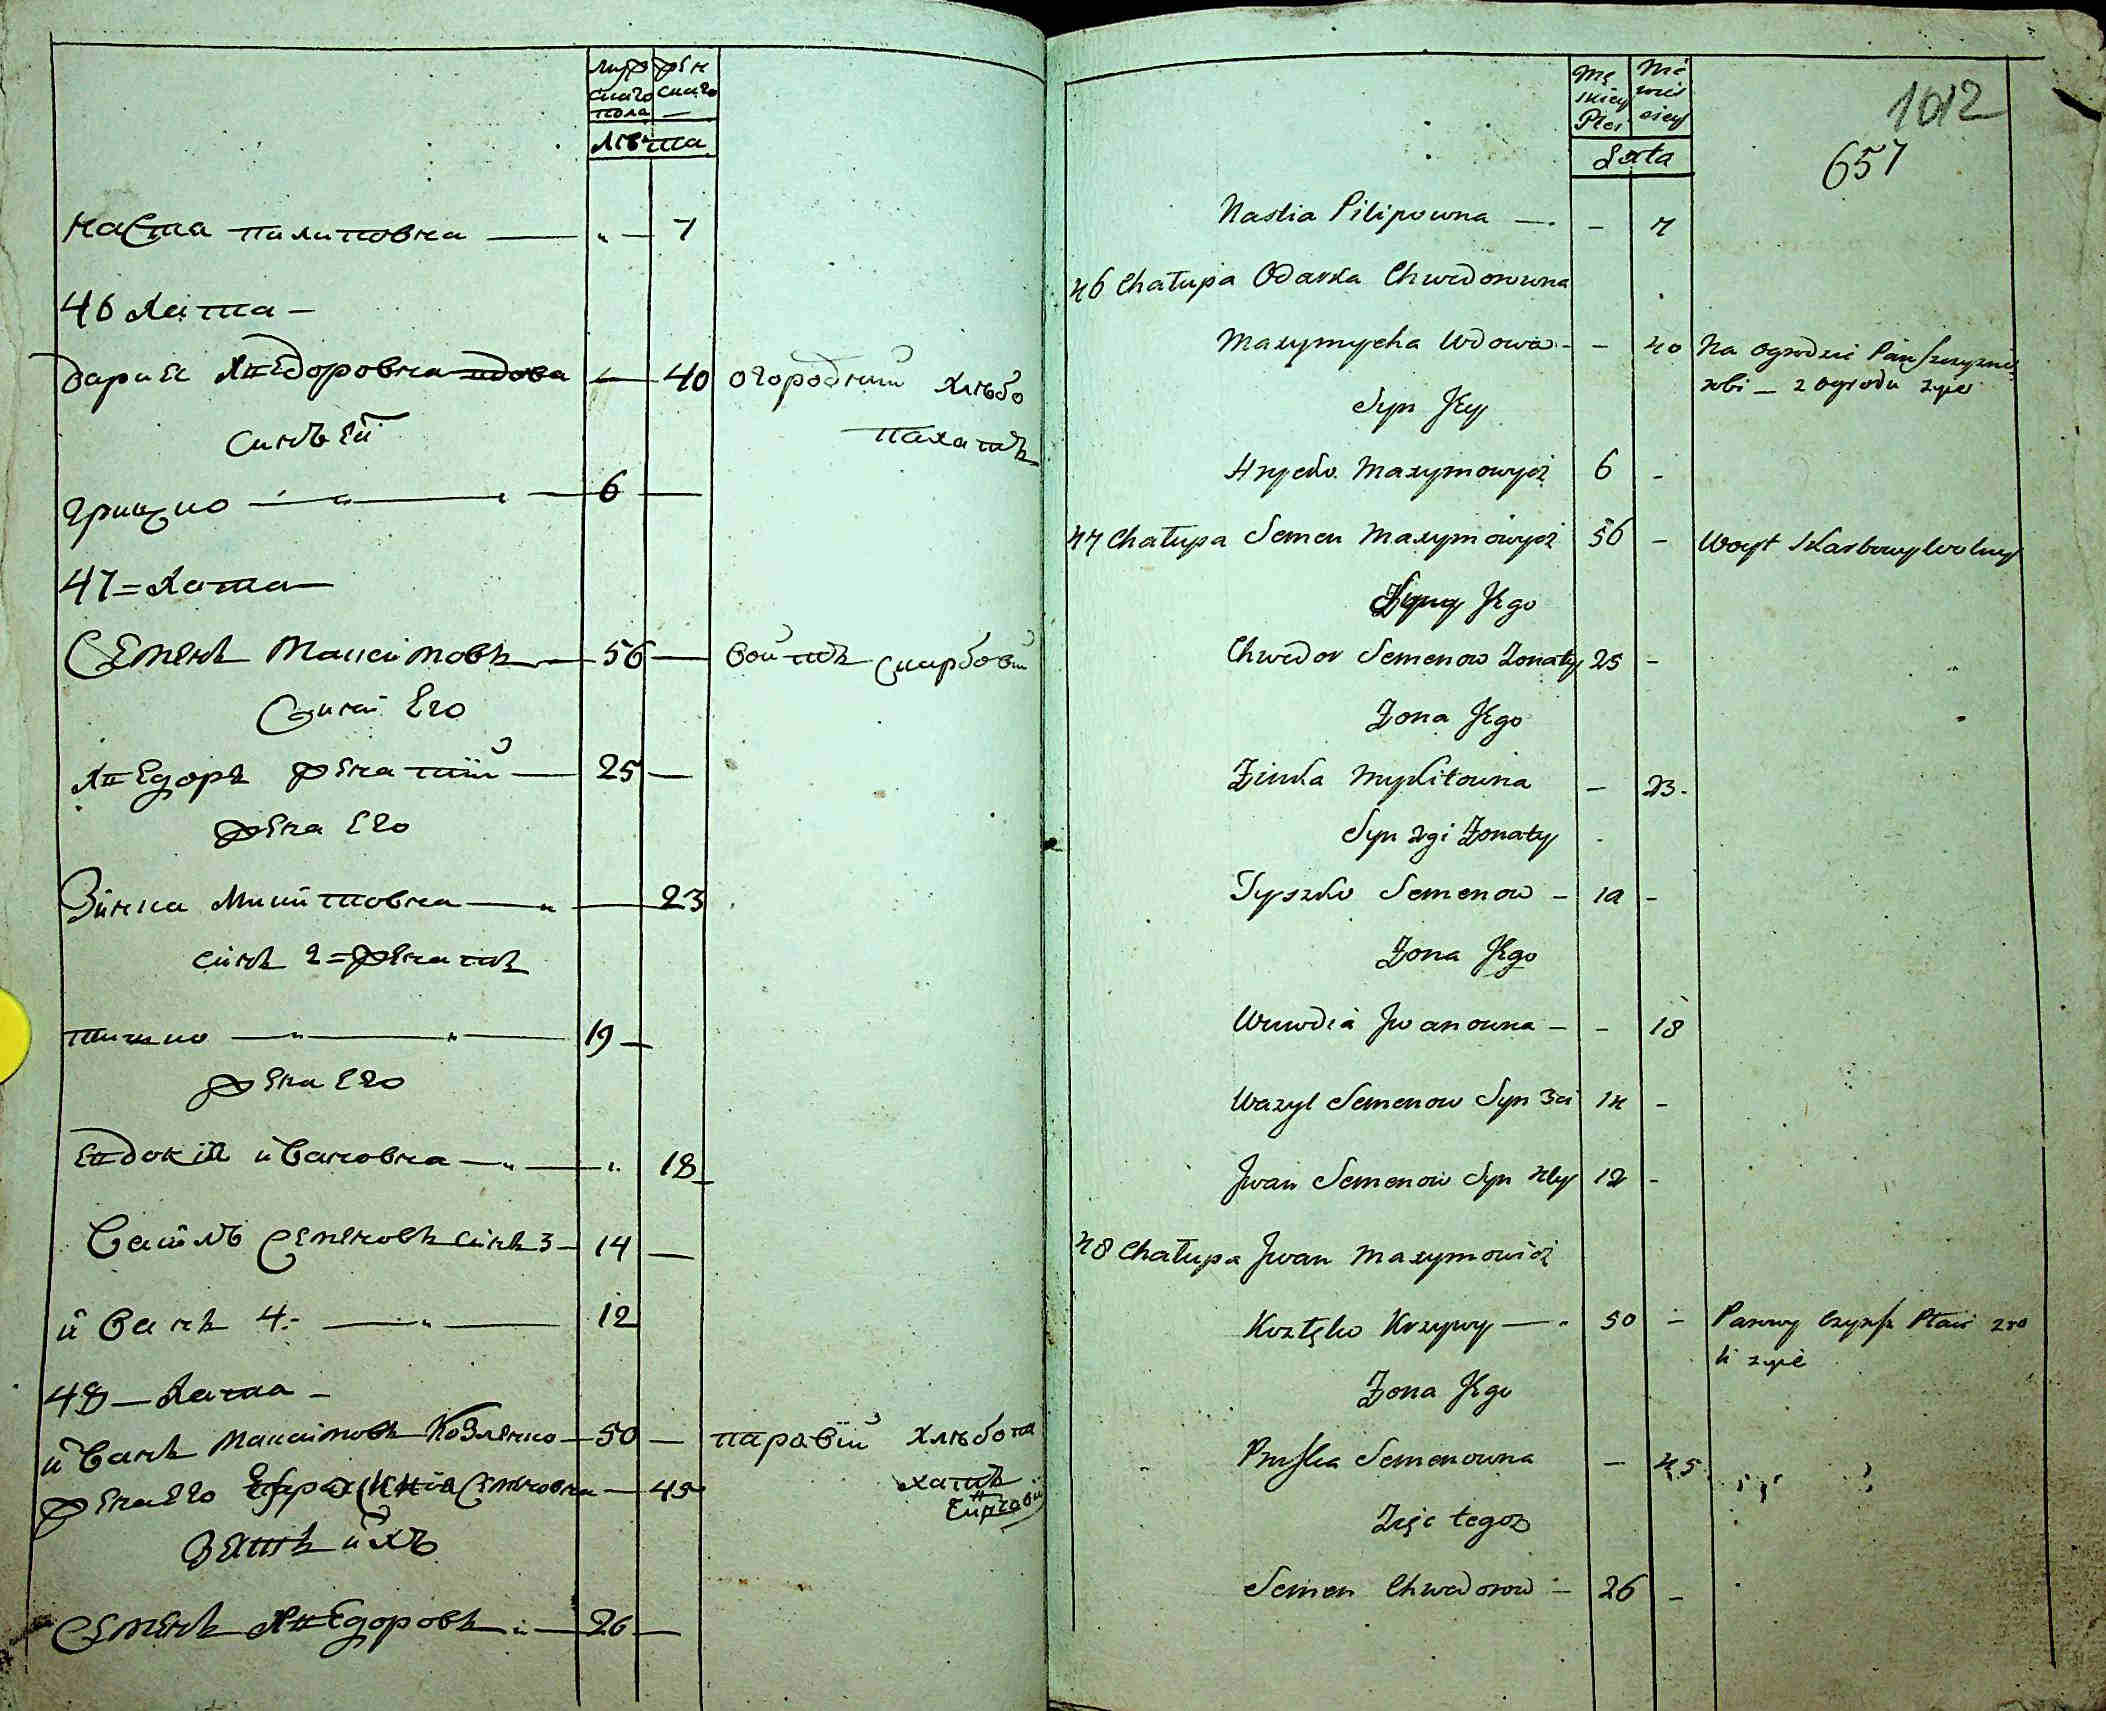 муж жен
скаго скаго
пола —
Лѣта
Настя Пилиповна — „ — 7
46 Хата —
Дария Хведоровна вдова — 40 огородний хлѣбо
синъ ей пахатъ
Грицко — „ — 6 —
47 = Хата —
Семенъ Максимовъ — 56 — войтъ скарбовий
Сини Его
Хведоръ женатий — 25 —
жена Его
Зинка Микитовна — „ — 23
синъ 2 = женатъ
Тишко — „ — „ — 19 —
жена Его
Евдокия Ивановна — „ — „ 18
Василь Семеновъ синъ 3 — 14 —
Иванъ 4 — „ — 12
48 — Хата —
Иванъ Максимовъ Козленко — 50 — паровий хлѣбопа
жена Его Семеновна — 45 хатъ
зять ихъ
Семенъ Хведоровъ „ — 26 —
Mę Nie
skiey wieś
Płci ciey
Lata
1012
657
Nastia Pilipowna — - 7
46 Chałupa Odarka Chwedorowna
Maxymycha Wdowa - - 40 Na ogrodzie Pańszczyznę
robi — z ogrodu żyie
Syn Jey
Hryćko Maxymowycz 6 -
47 Chałupa Semen Maxymowycz 56 - Woyt Skarbowy Wolny
Syny Jego
Chwedor Semenow Żonaty 25 -
Żona Jego
Zinka Mykitowna - 23 -
Syn 2gi Żonaty
Tyszko Semenow - 19 -
Żona Jego
Wuwdia Jwanowna - - 18
Wazyl Semenow Syn 3ci 14 -
Jwan Semenow Syn 4ty 12 -
48 Chałupa Jwan Maxymowicz
Kozłęko Krzywy — 50 - Parowy Czynsz Płaci z ro
li żyie
Żona Jego
Pryska Semenowna - 45
Zięć tegoż
Semen Chwedorow - 26 -